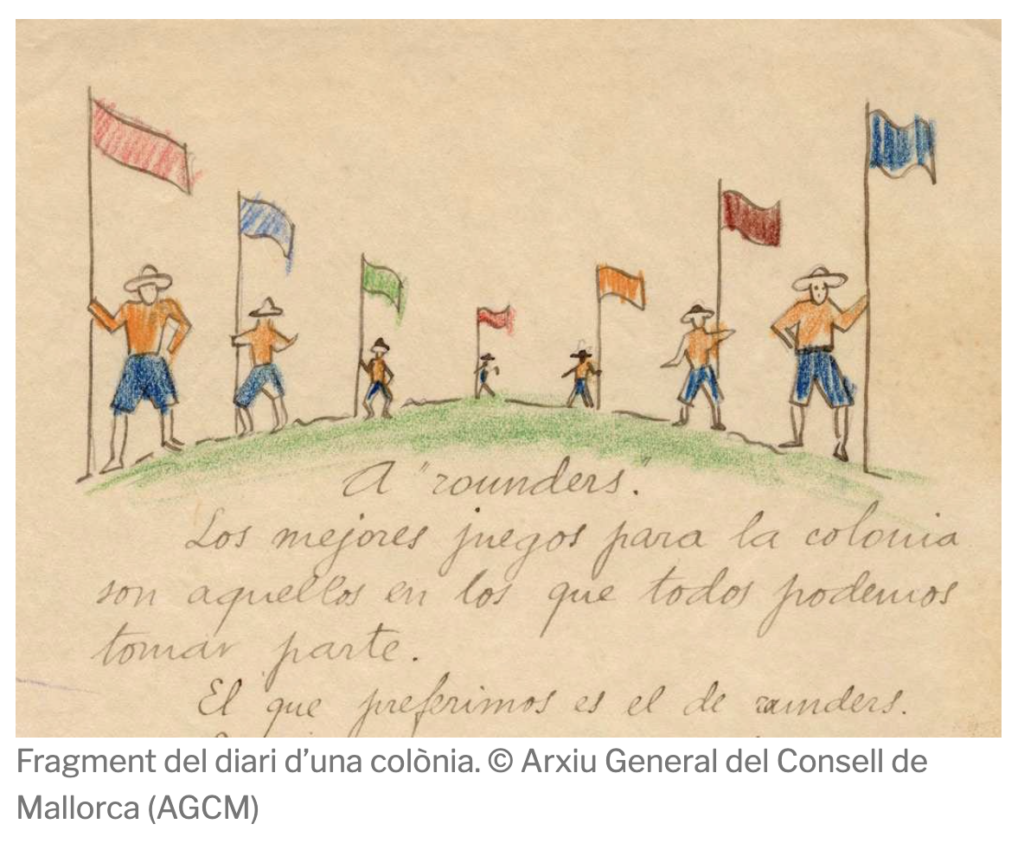 A "rounders".
Los mejores juegos para la colonia
son aquellos en los que todos podemos
tomar parte.
El que preferimos es el de rounders.
Fragment del diari d’una colònia. © Arxiu General del Consell de
Mallorca (AGCM)